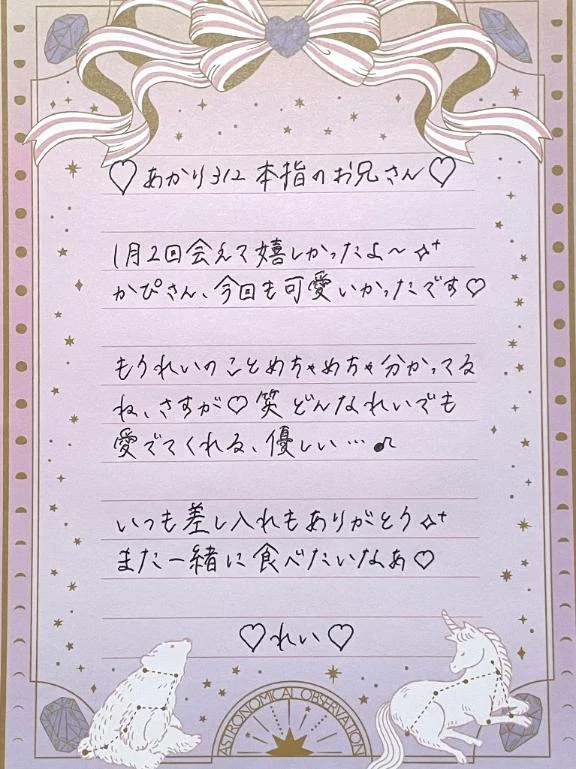 ♡あかり312本指のお兄さん♡
1月2回会えて嬉しかったよ〜✧⁺
かぴさん、今回も可愛いかったです♡
もうれいのことめちゃめちゃ分かってる
ね、さすが♡笑 どんなれいでも
愛でてくれる、優しい…♫
いつも差し入れもありがとう✧⁺
また一緒に食べたいなぁ♡
♡れい♡
ASTRONOMICAL OBSERVATION